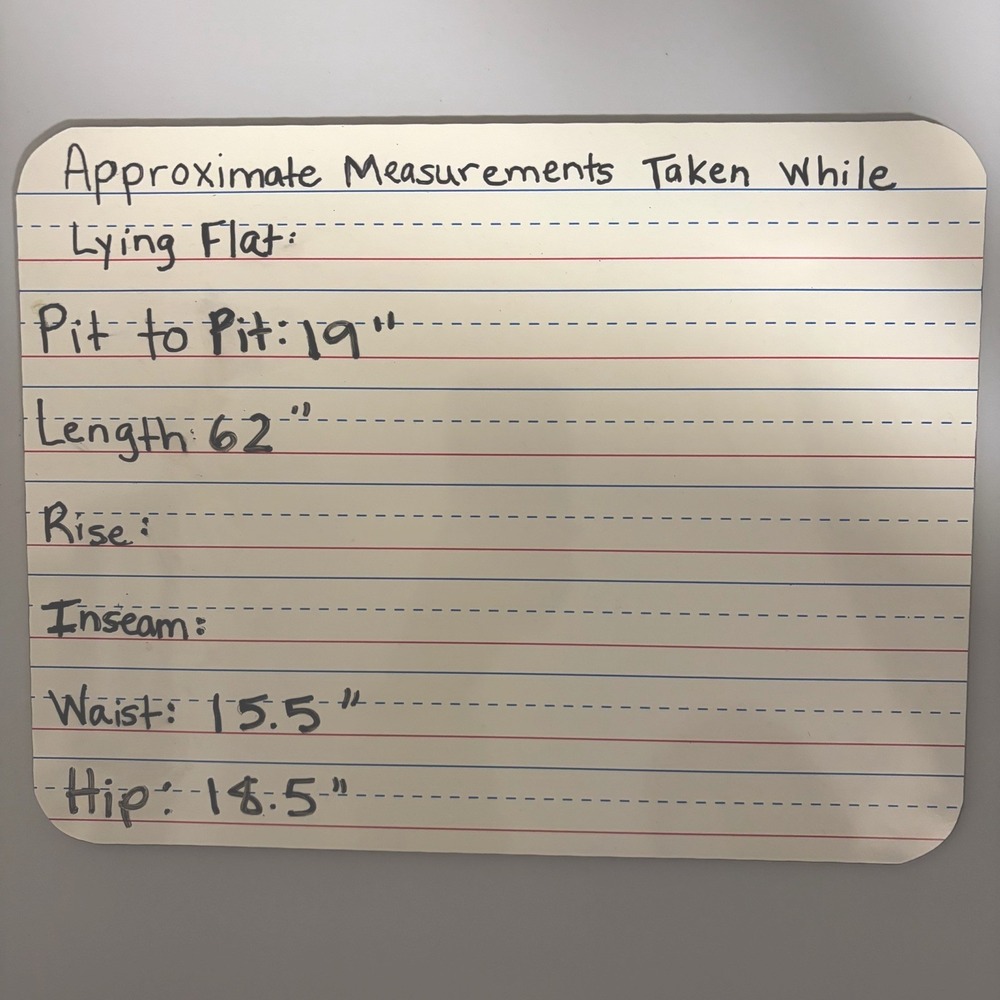 Approximate Measurements Taken While
Lying Flat:
Pit to Pit: 19"
Length: 62"
Rise:
Inseam:
Waist: 15.5"
Hip: 18.5"